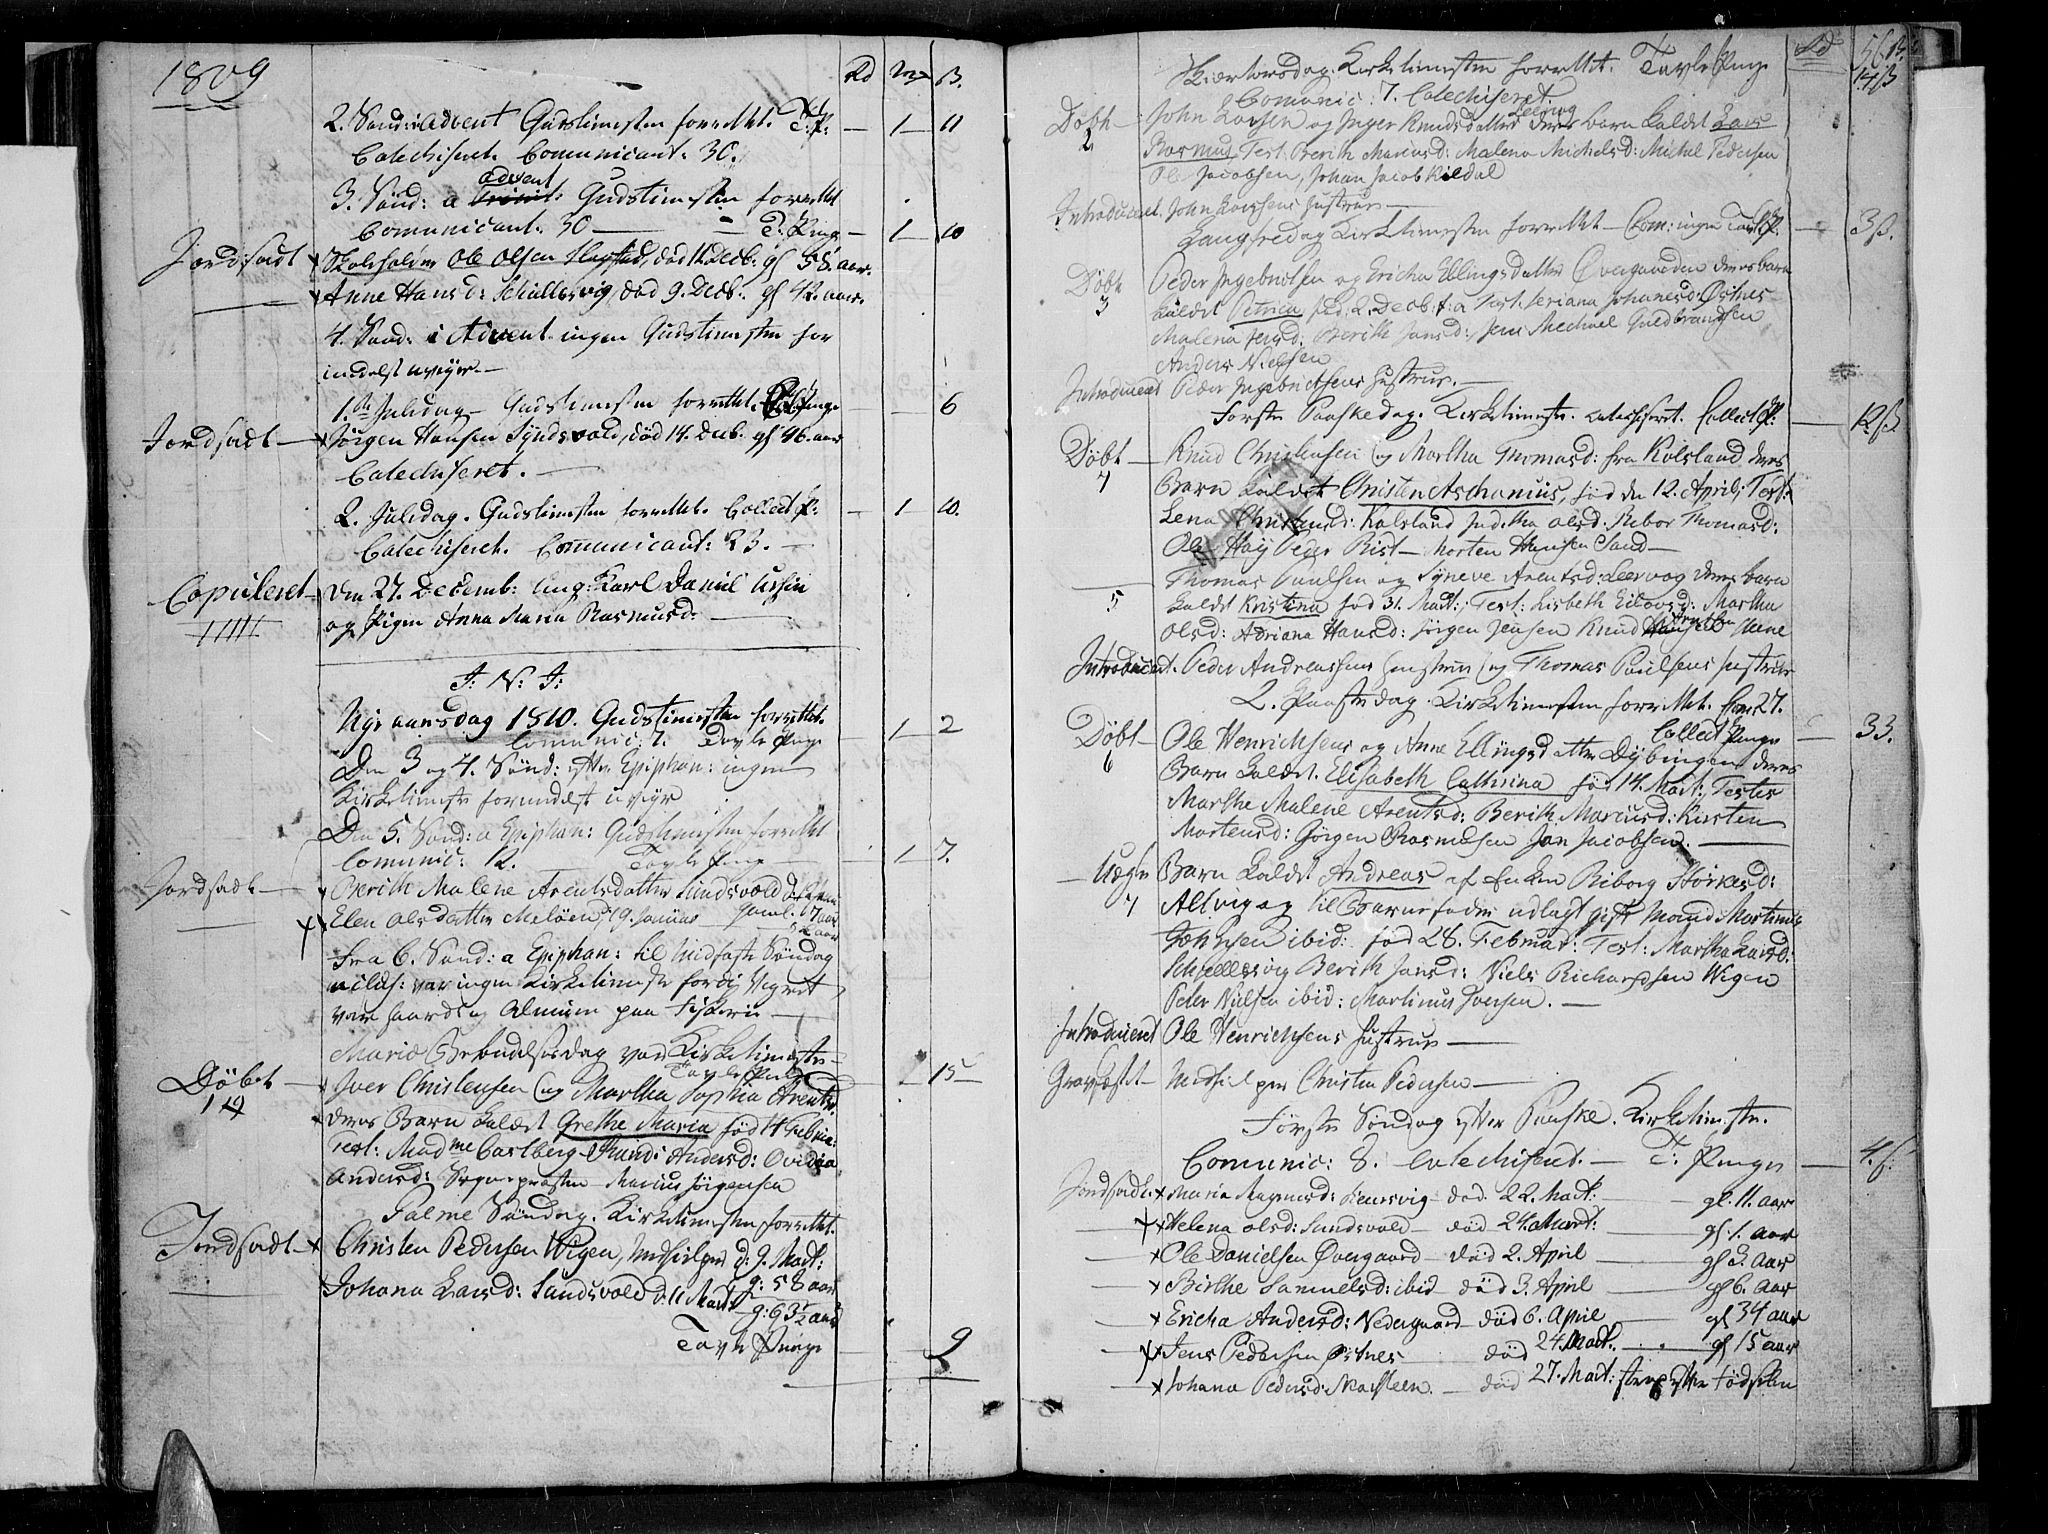 1809
Rd Mk ß.
2. Sønd: i Advent Gudstienesten forrettet. T: P: — 1 — 11
Catechiseret. Comunicant. 30.
advent
3. Sønd: a Trinit: Gudstienesten forrettet
Comunicant. 30 — T: Penge — 1 — 10
Jordfæstet × Skoleholder Ole Olsen Slagstad, død 11 Decb: gl 58 aar.
× Anne Hansd: Schiellesvig, død 9. Decb. gl 42. aar.
4. Sønd. i Advent ingen Gudstieneste for
medelst uveyr.—
1.ste Juledag — Gudstienesten forrettet. Penge — 6
Jordfæstet — × Jørgen Hansen Syndsvold, død 14. Decb. gl 46. aar
Catechiseret. —
2. Juledag. Gudstienesten forrettet. Collect P: — 1 — 10.
Catechiseret. Comunicant: 23. —
Copuleret — den 27. Decemb: Ung: Karl Daniel
og Pigen Anna Maria Rasmusd. —
I: N: J:
Nye aarsdag 1810. Gudstienesten forrettet.
Comunic: 7. Tavle Penge — 1 — 2
Den 3 og 4. Sønd: efter Epiphan: ingen
Kirketieneste formedelst uveyr
Den 5. Sønd: a Epiphan: Gudstienesten forrettet
Comunic: 12. Tavle Penge — 1 — 7.
Jordfæstet — × Berith Malene Arentsdatter Sundsvold
Elen Olsdatter Meløen, 19. Januar gaml. 17 aar
Fra 6. Sønd: a Epiphan: til Midfaste Søndag
var ingen Kirketieneste fordi Veyret
var haardt og Almuen paa Fiskerie —
Mariæ Bebudelsesdag var Kirketieneste —
Tavle Penge — 15
Døbt — × Iver Christensen og Martha Sophia Arentsd.
1
deres Barn kaldet Grethe Maria fød 14 Februar.
Test: Madme Carlberg Anders: Ovidia
Andersd: Sogne præsten — Marius Jørgensen
Palme Søndag. Kirketienesten forrettet.
Jordfæstet — × Christen Pedersen Wigen, Medhielper d. 9. Mart:
g: 58 aar
Johana Larsd: Sundsvold d. 11 Mart
g: 63½ aar
Tavle Penge 9
Rd
Skiertorsdag. Kirketienesten forrettet. Tavle Penge 14ß
Comunic: 7. Catechiseret.
Døbt — John Larsen og Inger Knudsdatter Leering deres barn kaldet Lars
2
Rasmus Test: Berith Mariusd: Malena Michelsd: Michel Pedersen
Ole Jacobsen, Johan Jacob Kildal
Introduceret. John Larsens Hustrue —
Langfredag Kirketienesten forrettet — Com: ingen Tavle P. — 3ß.
Døbt Peder Ingebritsen og Ericha Ellingsdatter Overgaarden deres barn
3
kaldet Petrica fød 2. Decb: f: a Test. Seriana Johanesd: Østnes
Malena Jensd: Berith Jensd: Jens Mechael Guldbrandsen
Anders Nielsen
Introduceret Peder Ingebritsens Hustrue. —
Første Paaskedag. Kirketieneste. catechiseret. Collect P. — 12ß
Døbt — Knud Christensen og Martha Thomasd: fra Kolsland deres
4
Barn kaldet Christen Aschanius, fød den 12. April; Test:
Lena Christensd: Kolsland Olsd. Rebor Thomasd:
Ole Høy Peder Rist — Morten Hansen Sand —
5 Thomas Paulsen og Syneve Arentsd: Leervog deres barn
kaldet Kristina fød 31. Mart; Test: Lisbeth Eilovsd: Martha
Olsd: Adriana Hansd: Jørgen Jensen Knud
Introduceret. Peder Andreassens Hustrue og Thomas Paulsens Hustrue
2. Paaske dag. Kirketienesten forrettet. Com 27.
Collect Penge — 33.
Døbt — Ole Henrichsens og Anne Ellingsdatter Dybingen deres
6
Barn kaldet. Elisabeth Cathrina fød 14. Mart: Testes
Marthe Malene Arentsd: Berith Marcusd: Kirsten
Mortensd: Jørgen Rasmusen Jan Jacobsen. —
— Uægte Barn kaldet Andreas af Enken Riborg Størkesd:
7
Altvig og til Barnefader udlagt gift Mand Mortinus
Johnsen ibid: fød 28. Februar: Test: Martha Larsd:
Schiellesvig Berith Jensd: Niels Richardsen Wigen
Peter Nielsen ibid: Martinus Iversen. —
Introduceret Ole Henrichsens Hustrue —
Gravfæstet — Medhielper Christen Pedersen —
Første Søndag efter Paaske. Kirketieneste.
Comunic: 8. catechiseret. — T: Penge — 4.ß
Jordfæstet × Maria Magnusd: Leersvig — død 22. Mart: — gl. 11. aar
×× Helena Olsd: Sundsvold — død 24. Mart: — gl. 1. aar
— × Ole Danielsen Overgaard — død 2. April — gl 2. aar
— × Birthe Samuelsd: ibid — død 3. April — gl 6. aar
— × Ericha Andersd: Nedergaard — død 6. April — gl 34 aar
— × Jens Pedersen Østnes — død 24. Mart. — gl 15 aar
— × Johana Pedersd: — død 27. Mart: strax efter Fødselen